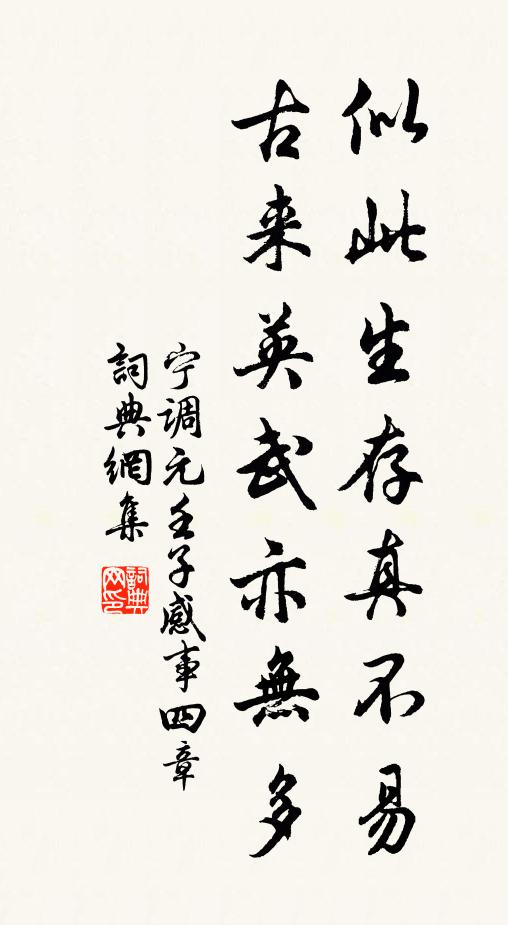 似此生存真不易
古来英武亦無多
宁调元壬子感事四章
詞典網集
詞典網印